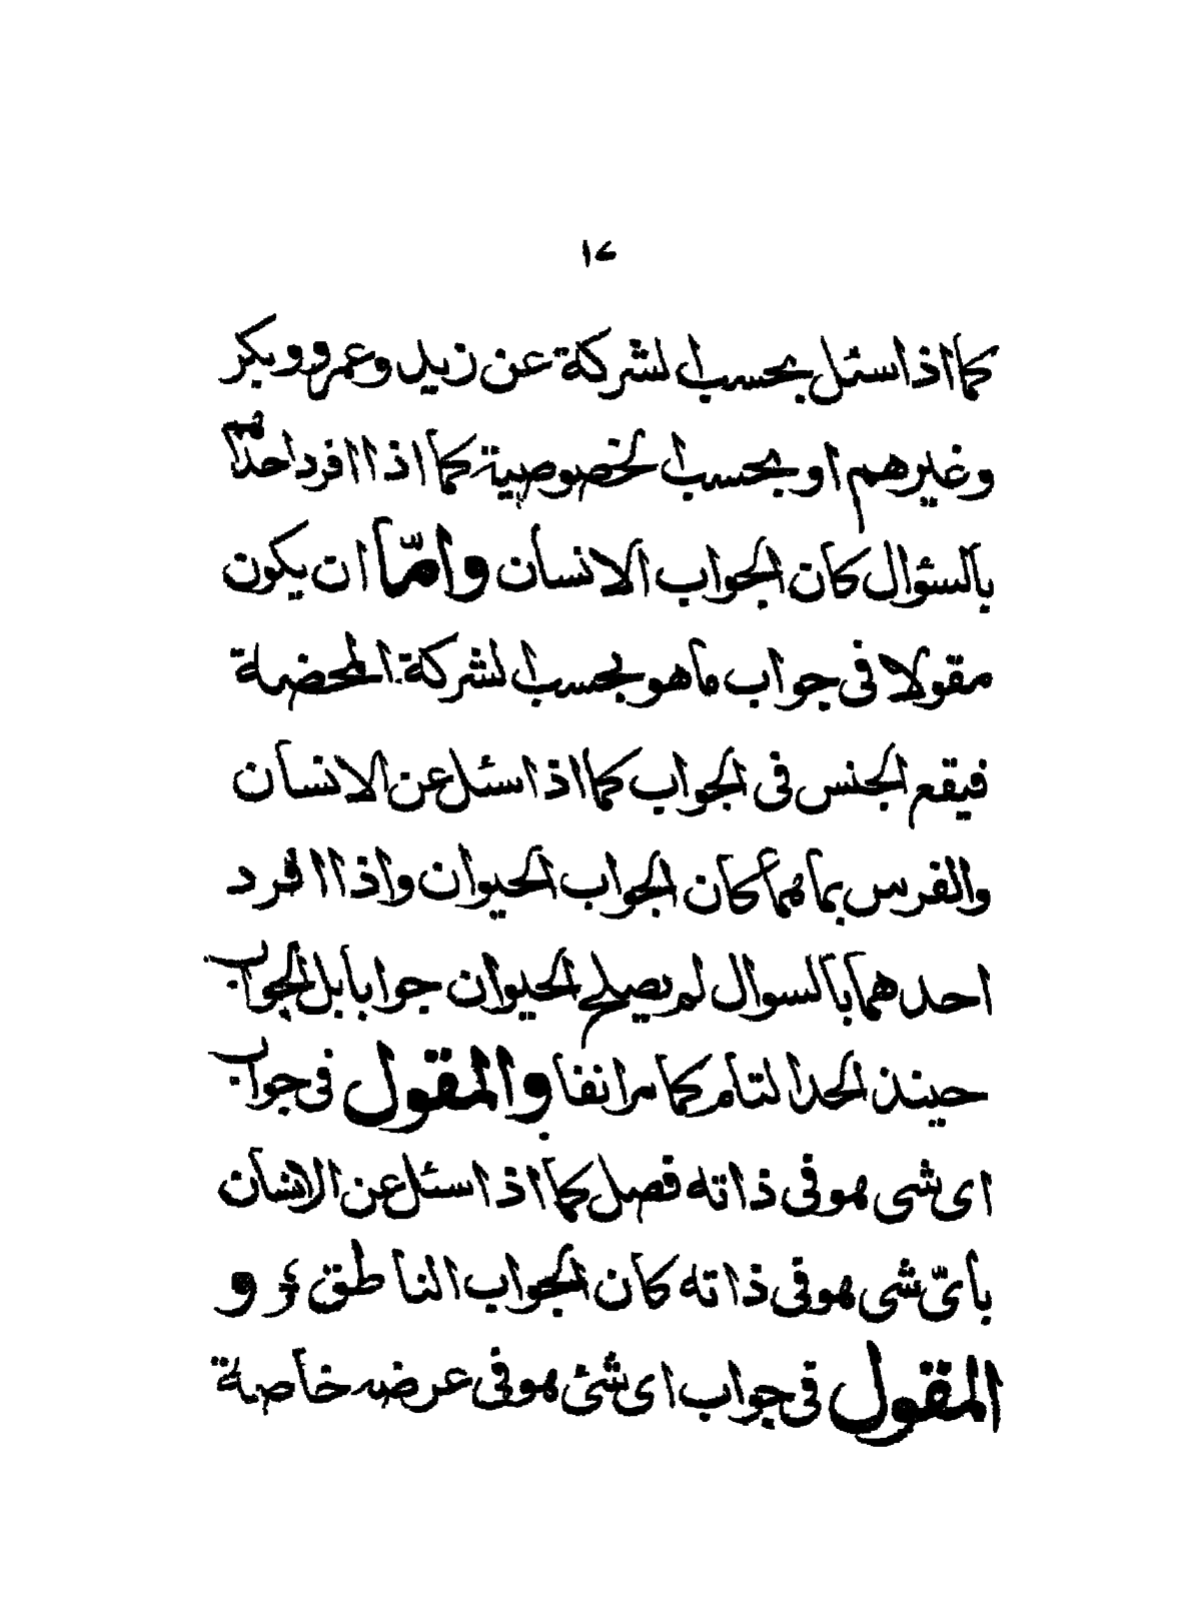 ١٧
كما اذا سئل بحسب الشركة عن زيد وعمرو وبكر
وغيرهم او بحسب الخصوصية كما اذا افرد احدهم
بالسؤال كان الجواب الانسان وامّا ان يكون
مقولا فى جواب ما هو بحسب الشركة المحضة
فيقع الجنس فى الجواب كما اذا سئل عن الانسان
والفرس بما هما كان الجواب الحيوان واذا افرد
احدهما بالسوال لم يصلح الحيوان جوابا بل الجواب
حينئذ الحد التام كما مر انفا والمقول فى جواب
اى شى هو فى ذاته فصل كما اذا سئل عن الانسان
باىّ شى هو فى ذاته كان الجواب الناطق و
المقول فى جواب اى شئ هو فى عرضه خاصة